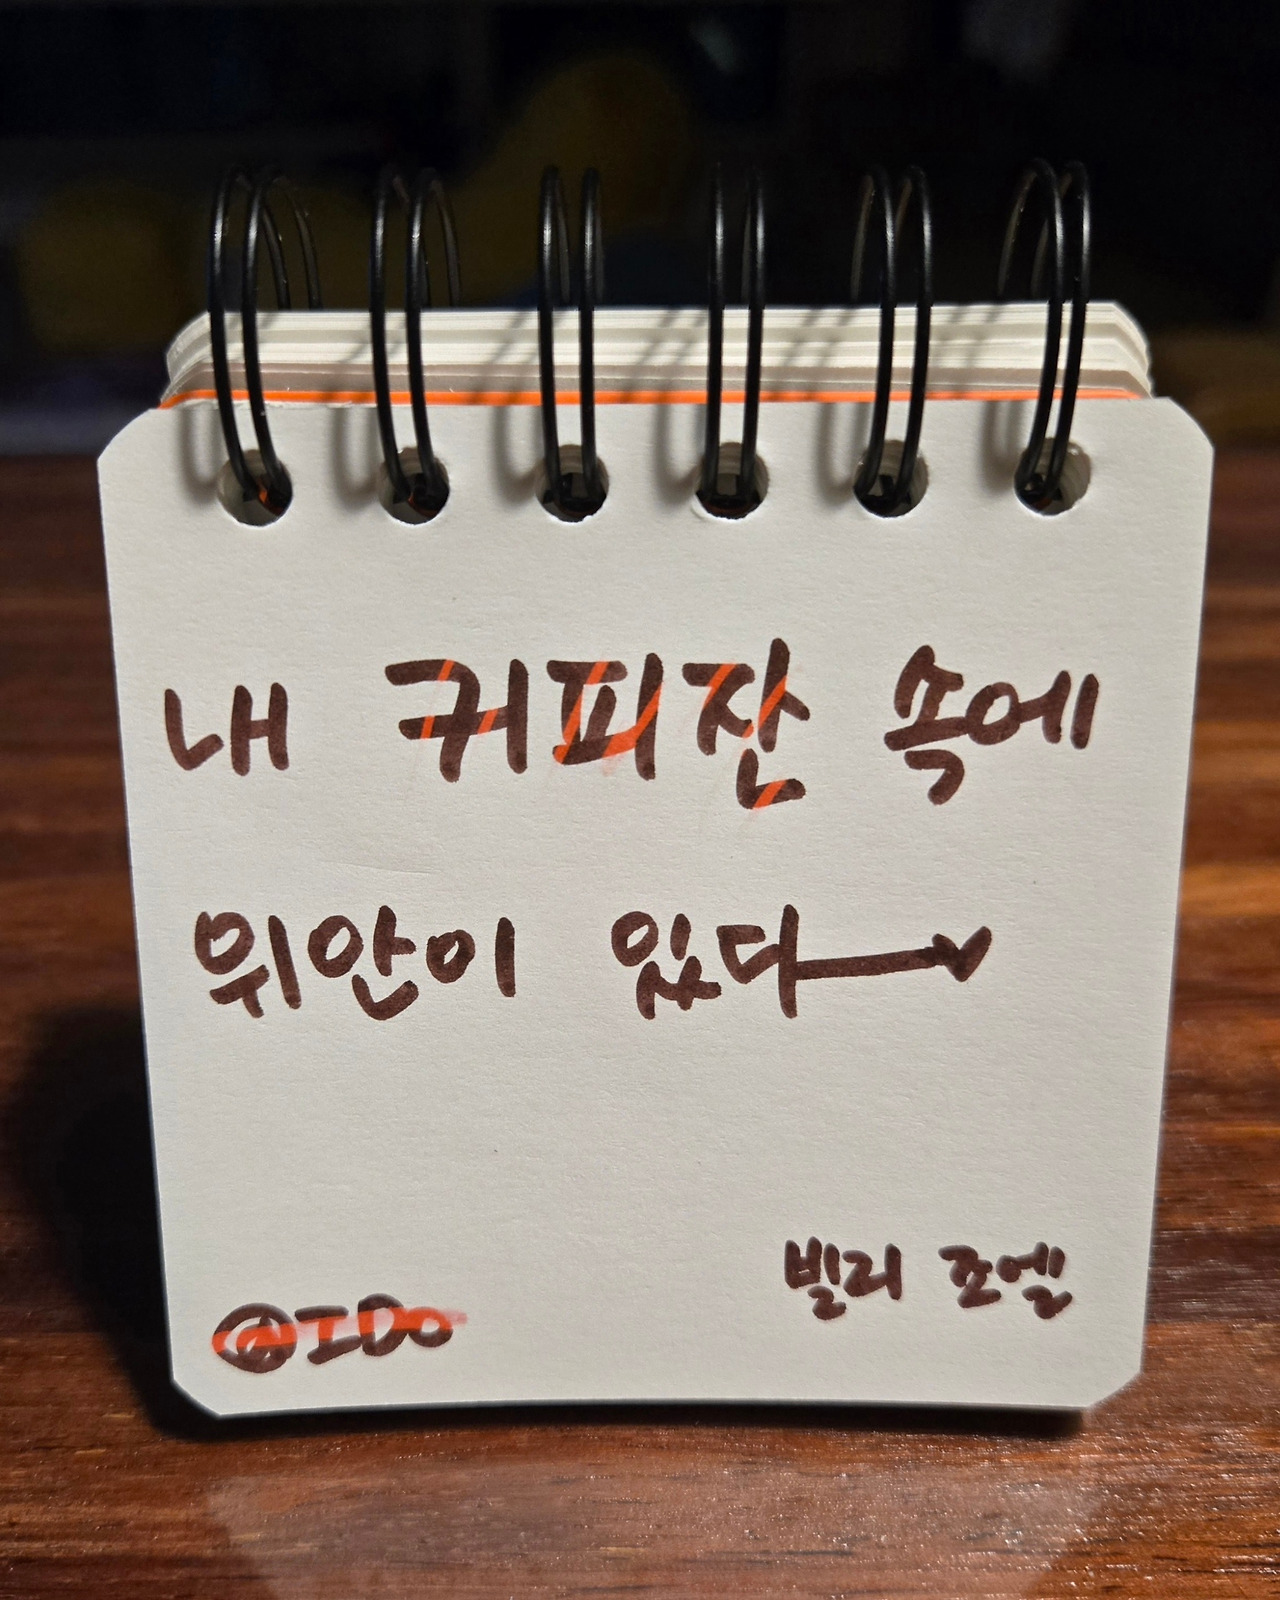 내 커피잔 속에
위안이 있다
빌리 죠엘
@IDo